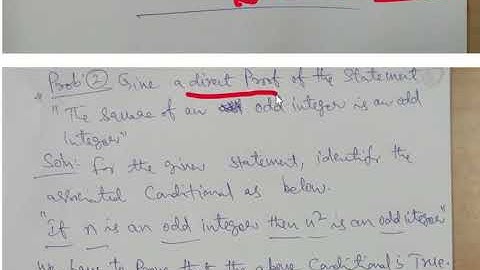 " Prob: ② Give a direct Proof of the Statement
" The Square of an odd integer is an odd
integer"
Soln: For the given statement, identify the
associated Conditional as below.
"If n is an odd integer then n² is an odd iteger"
We have to Prove tht the above Conditional is True.